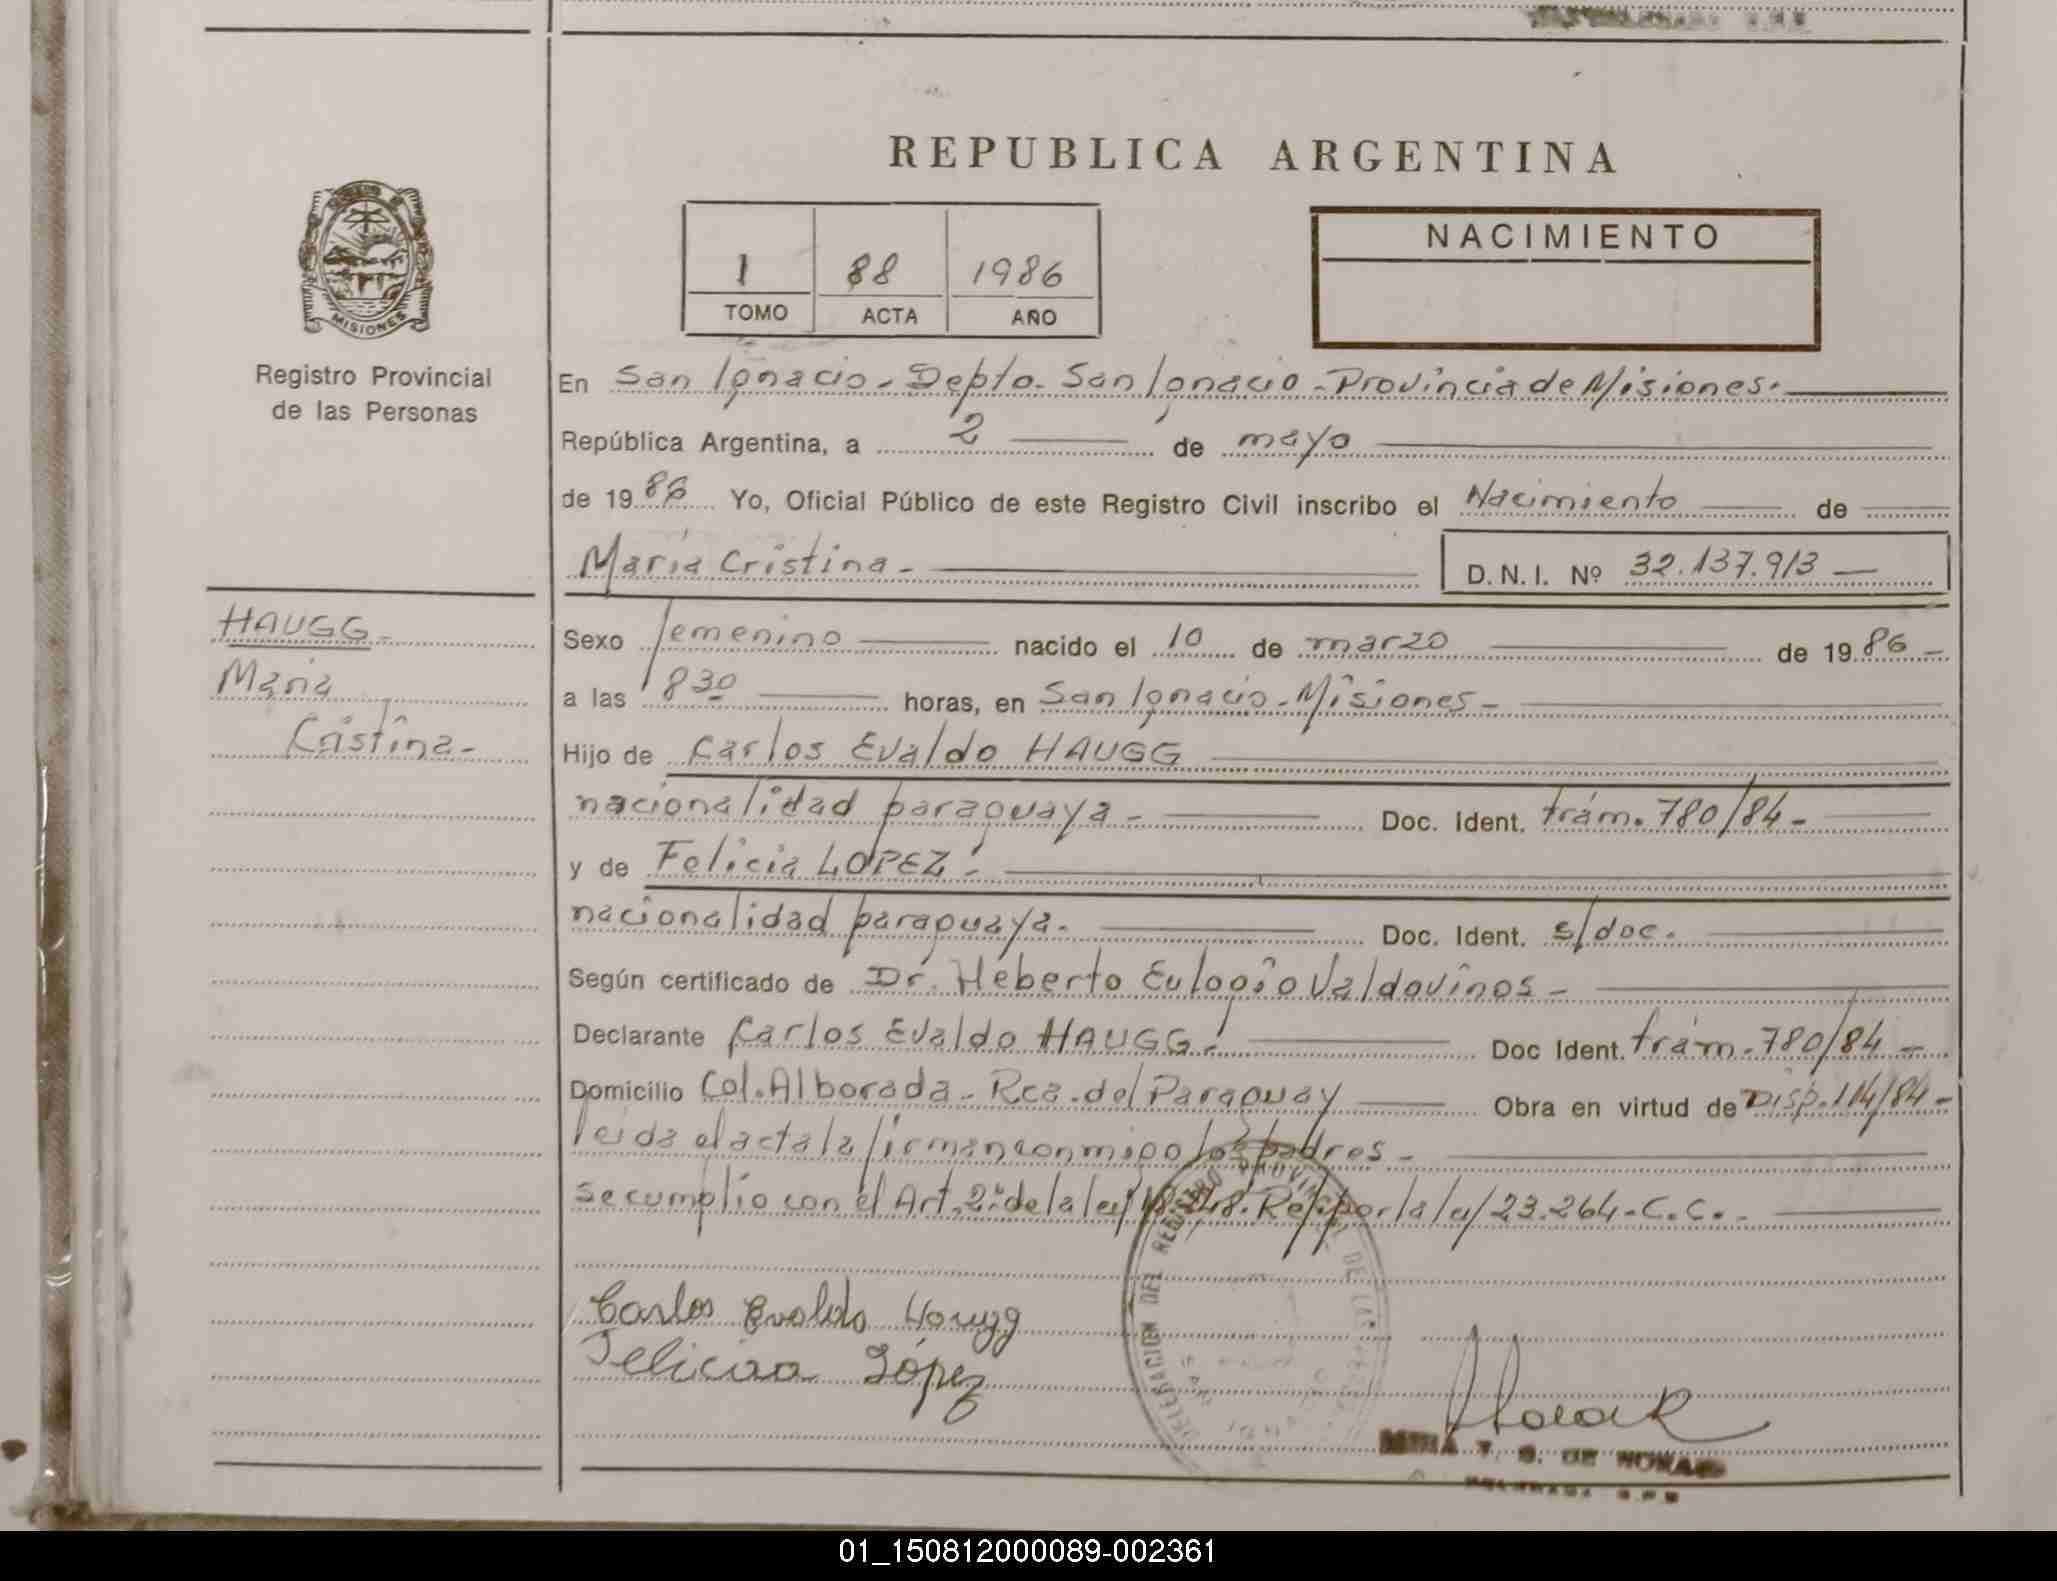 REPUBLICA ARGENTINA
MISIONES
Registro Provincial
de las Personas
1 88 1986
TOMO ACTA AÑO
NACIMIENTO
En San Ignacio - Depto. San Ignacio - Provincia de Misiones.
República Argentina, a 2 de mayo
de 1986 Yo, Oficial Público de este Registro Civil inscribo el Nacimiento de
María Cristina - D.N.I. Nº 32.137.913
HAUGG
María
Cristina-
Sexo femenino nacido el 10 de marzo de 1986 -
a las 8 30 horas, en San Ignacio - Misiones -
Hijo de Carlos Evaldo HAUGG
nacionalidad paraguaya - Doc. Ident. trám. 780/84 -
y de Felicia LOPEZ -
nacionalidad paraguaya. Doc. Ident. s/doc.
Según certificado de Dr. Heberto Eulogio Valdovinos -
Declarante Carlos Evaldo HAUGG. Doc Ident. trám. 780/84 -
Domicilio Col. Alborada - Rca. del Paraguay Obra en virtud de Disp. 114/84 -
leida el acta la firman conmigo los padres -
se cumplio con el Art. 2º de la ley 18.248. Ref. por la ley 23.264 - C.C. -
Carlos Evaldo Haugg
Feliciaa López
DELEGACION DEL REGISTRO PROVINCIAL DE LAS
01_150812000089-002361